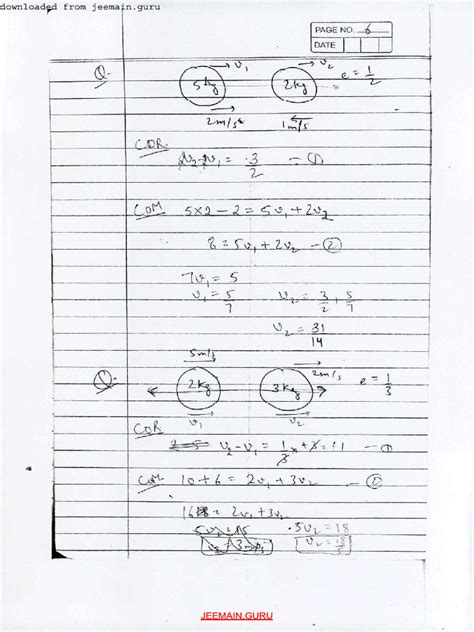 downloaded from jeemain.guru
PAGE NO. 6
DATE
Q. 5kg → v₁ 2kg → v₂ e = 1/2
2m/s 1m/s
COR
v₂-v₁ = 3/2 — ①
COM 5×2-2 = 5v₁+2v₂
8 = 5v₁+2v₂ — ②
7v₁ = 5
v₁ = 5/7 v₂ = 3/2 + 5/7
v₂ = 31/14
5m/s 2m/s
Q. 2kg 3kg e = 1/3
v₁ v₂
COR
v₂-v₁ = 1/3 × 3 = 1 — ①
COM 10+6 = 2v₁+3v₂ — ②
16 = 2v₁+3v₂
5v₂ = 18
v₂ = 18/5
JEEMAIN.GURU